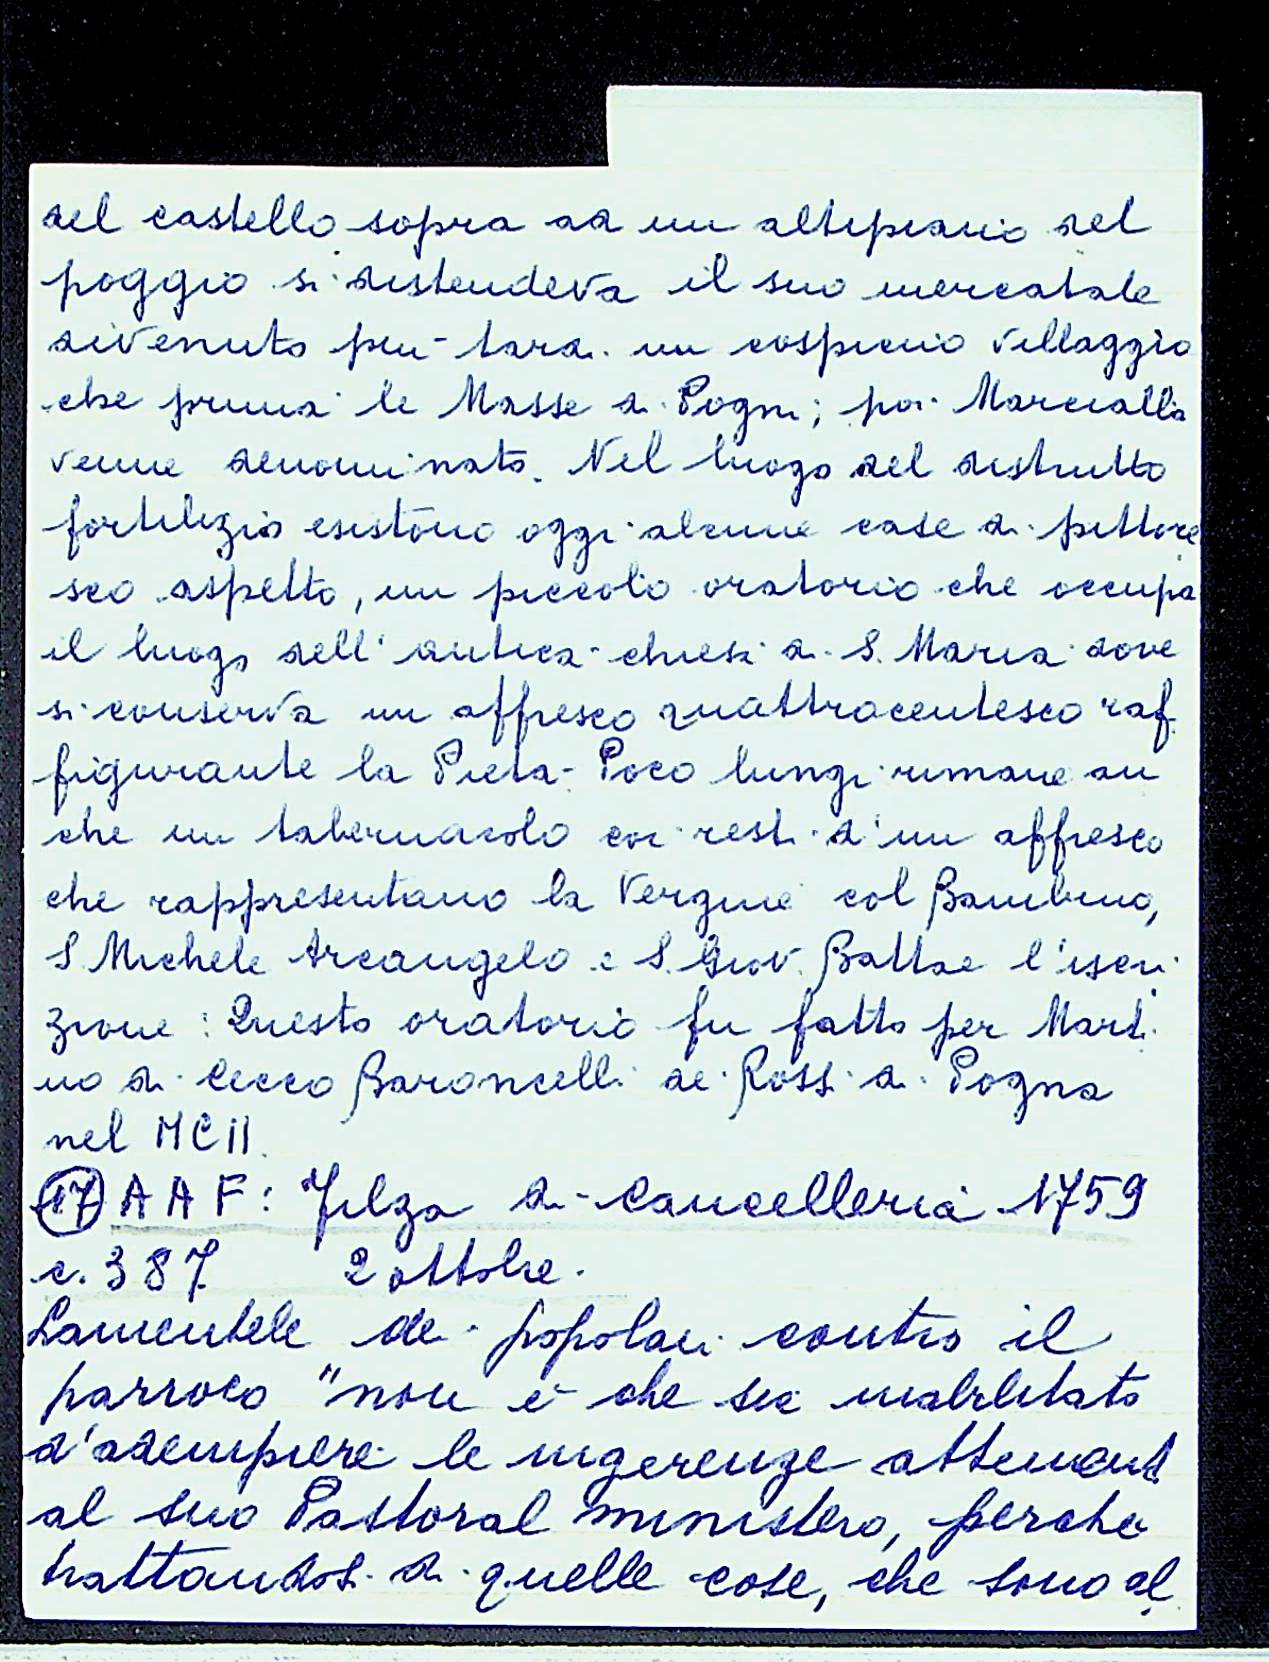 del castello sopra ad un altipiano del
poggio si distendeva il suo mercatale
divenuto piu tardi un cospicuo villaggio
che prima le Masse di Pogni; poi Marcialla
venne denominato. Nel luogo del distrutto
fortilizio esistono oggi alcune case di pittore
sco aspetto, un piccolo oratorio che occupa
il luogo dell'antica chiesa di S. Maria dove
si conserva un affresco quattrocentesco raf
figurante la Pietà- Poco lungi rimane an
che un tabernacolo coi resti d'un affresco
che rappresentano la Vergine col Bambino,
S. Michele Arcangelo e S. Giov. Batta e l'iscri
zione: Questo oratorio fu fatto per Marti
no di Cecco Baroncelli de Rossi di Pogna
nel MCII.
(17) A A F: Filza di Cancelleria 1759
c. 387 2 ottobre.
Lamentele dei popolani contro il
parroco "non è che sia inabilitato
d'adempiere le ingerenze attenenti
al suo Pastoral ministero, perche
trattandosi di quelle cose, che sono al